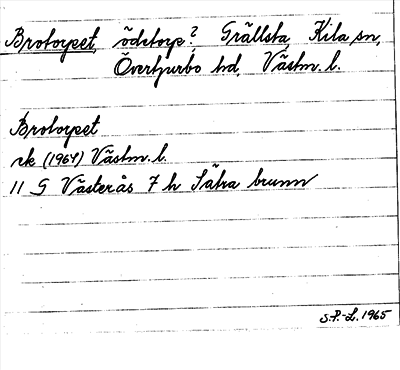 Brotorpet, ödetorp? Grällsta, Kila sn,
Övertjurbo hd, Västm. l.
Brotorpet
rk (1964) Västm. l.
11 G Västerås 7 h Sätra brunn
S.P.-L. 1965